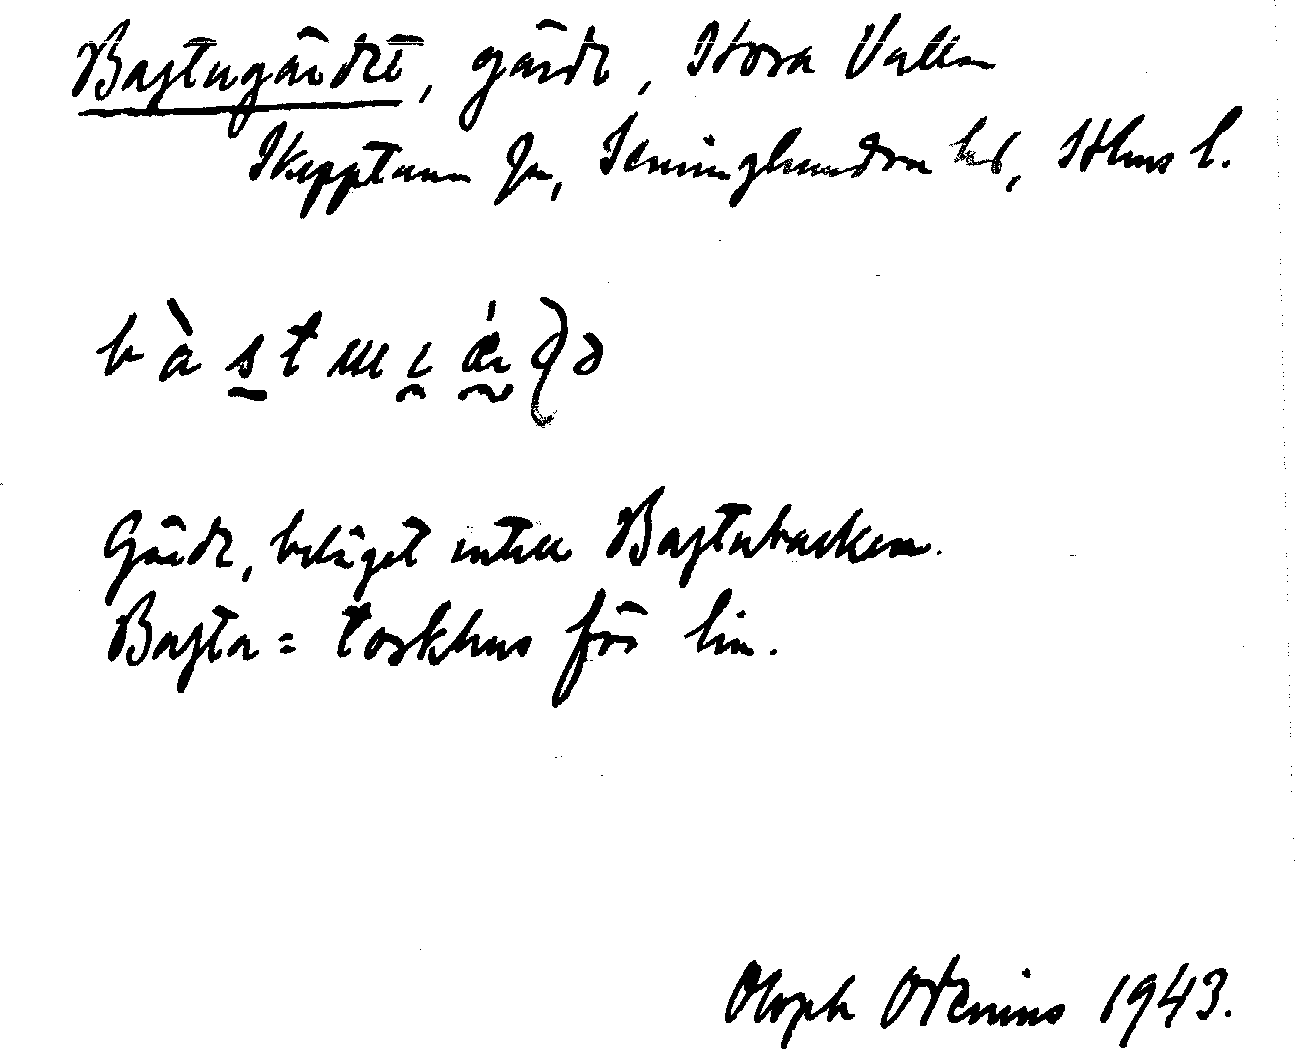 Bastugärdet, gärde, Stora Vallen
Skepptuna sn, Seminghundra hd, Sthms l.
Gärde, beläget intill Bastubacken.
Basta = torkhus för lin.
Oloph Odenius 1943.